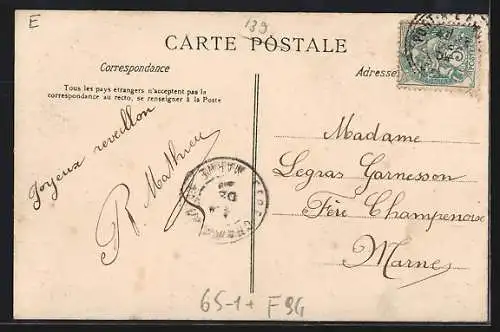 E
139
CARTE POSTALE
Correspondance
Adresse
Tous les pays étrangers n'acceptent pas la
correspondance au recto, se renseigner à la Poste
Joyeux reveillon
R. Mathieu
Madame
Legras Garnesson
Fère Champenoise
Marne
65-1+F94